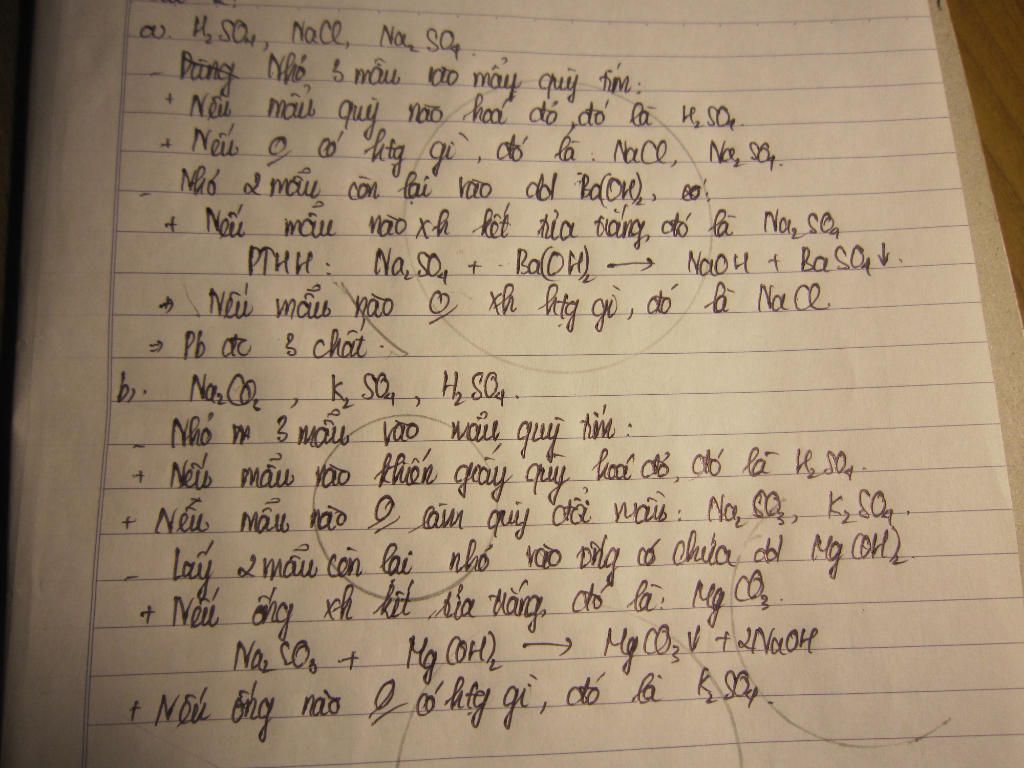 a. H₂SO₄, NaCl, Na₂SO₄.
- Nhỏ 3 mẫu vào mẩy quỳ tím:
+ Nếu mẩu quỳ nào hoá đỏ, đó là H₂SO₄.
+ Nếu O có htg gì, đó là: NaCl, Na₂SO₄.
- Nhỏ 2 mẫu còn lại vào dd Ba(OH)₂,
+ Nếu mẫu nào xh kết tủa trắng, đó là Na₂SO₄
PTHH: Na₂SO₄ + Ba(OH)₂ → NaOH + BaSO₄↓.
→ Nếu mẫu nào O xh htg gì, đó là NaCl.
⇒ Pb đc 3 chất.
b. Na₂CO₂, K₂SO₄, H₂SO₄.
- Nhỏ 3 mẫu vào mẩu quỳ tím:
+ Nếu mẫu nào khiến giấy quỳ hoá đỏ, đó là H₂SO₄.
+ Nếu mẫu nào O làm quỳ đổi màu: Na₂SO₃, K₂SO₄.
- Lấy 2 mẫu còn lại nhỏ vào ống có chứa dd Mg(OH)₂.
+ Nếu ống xh kết tủa trắng, đó là: MgCO₃.
Na₂CO₃ + Mg(OH)₂ → MgCO₃↓ + 2NaOH
+ Nếu ống nào O có htg gì, đó là K₂SO₄.